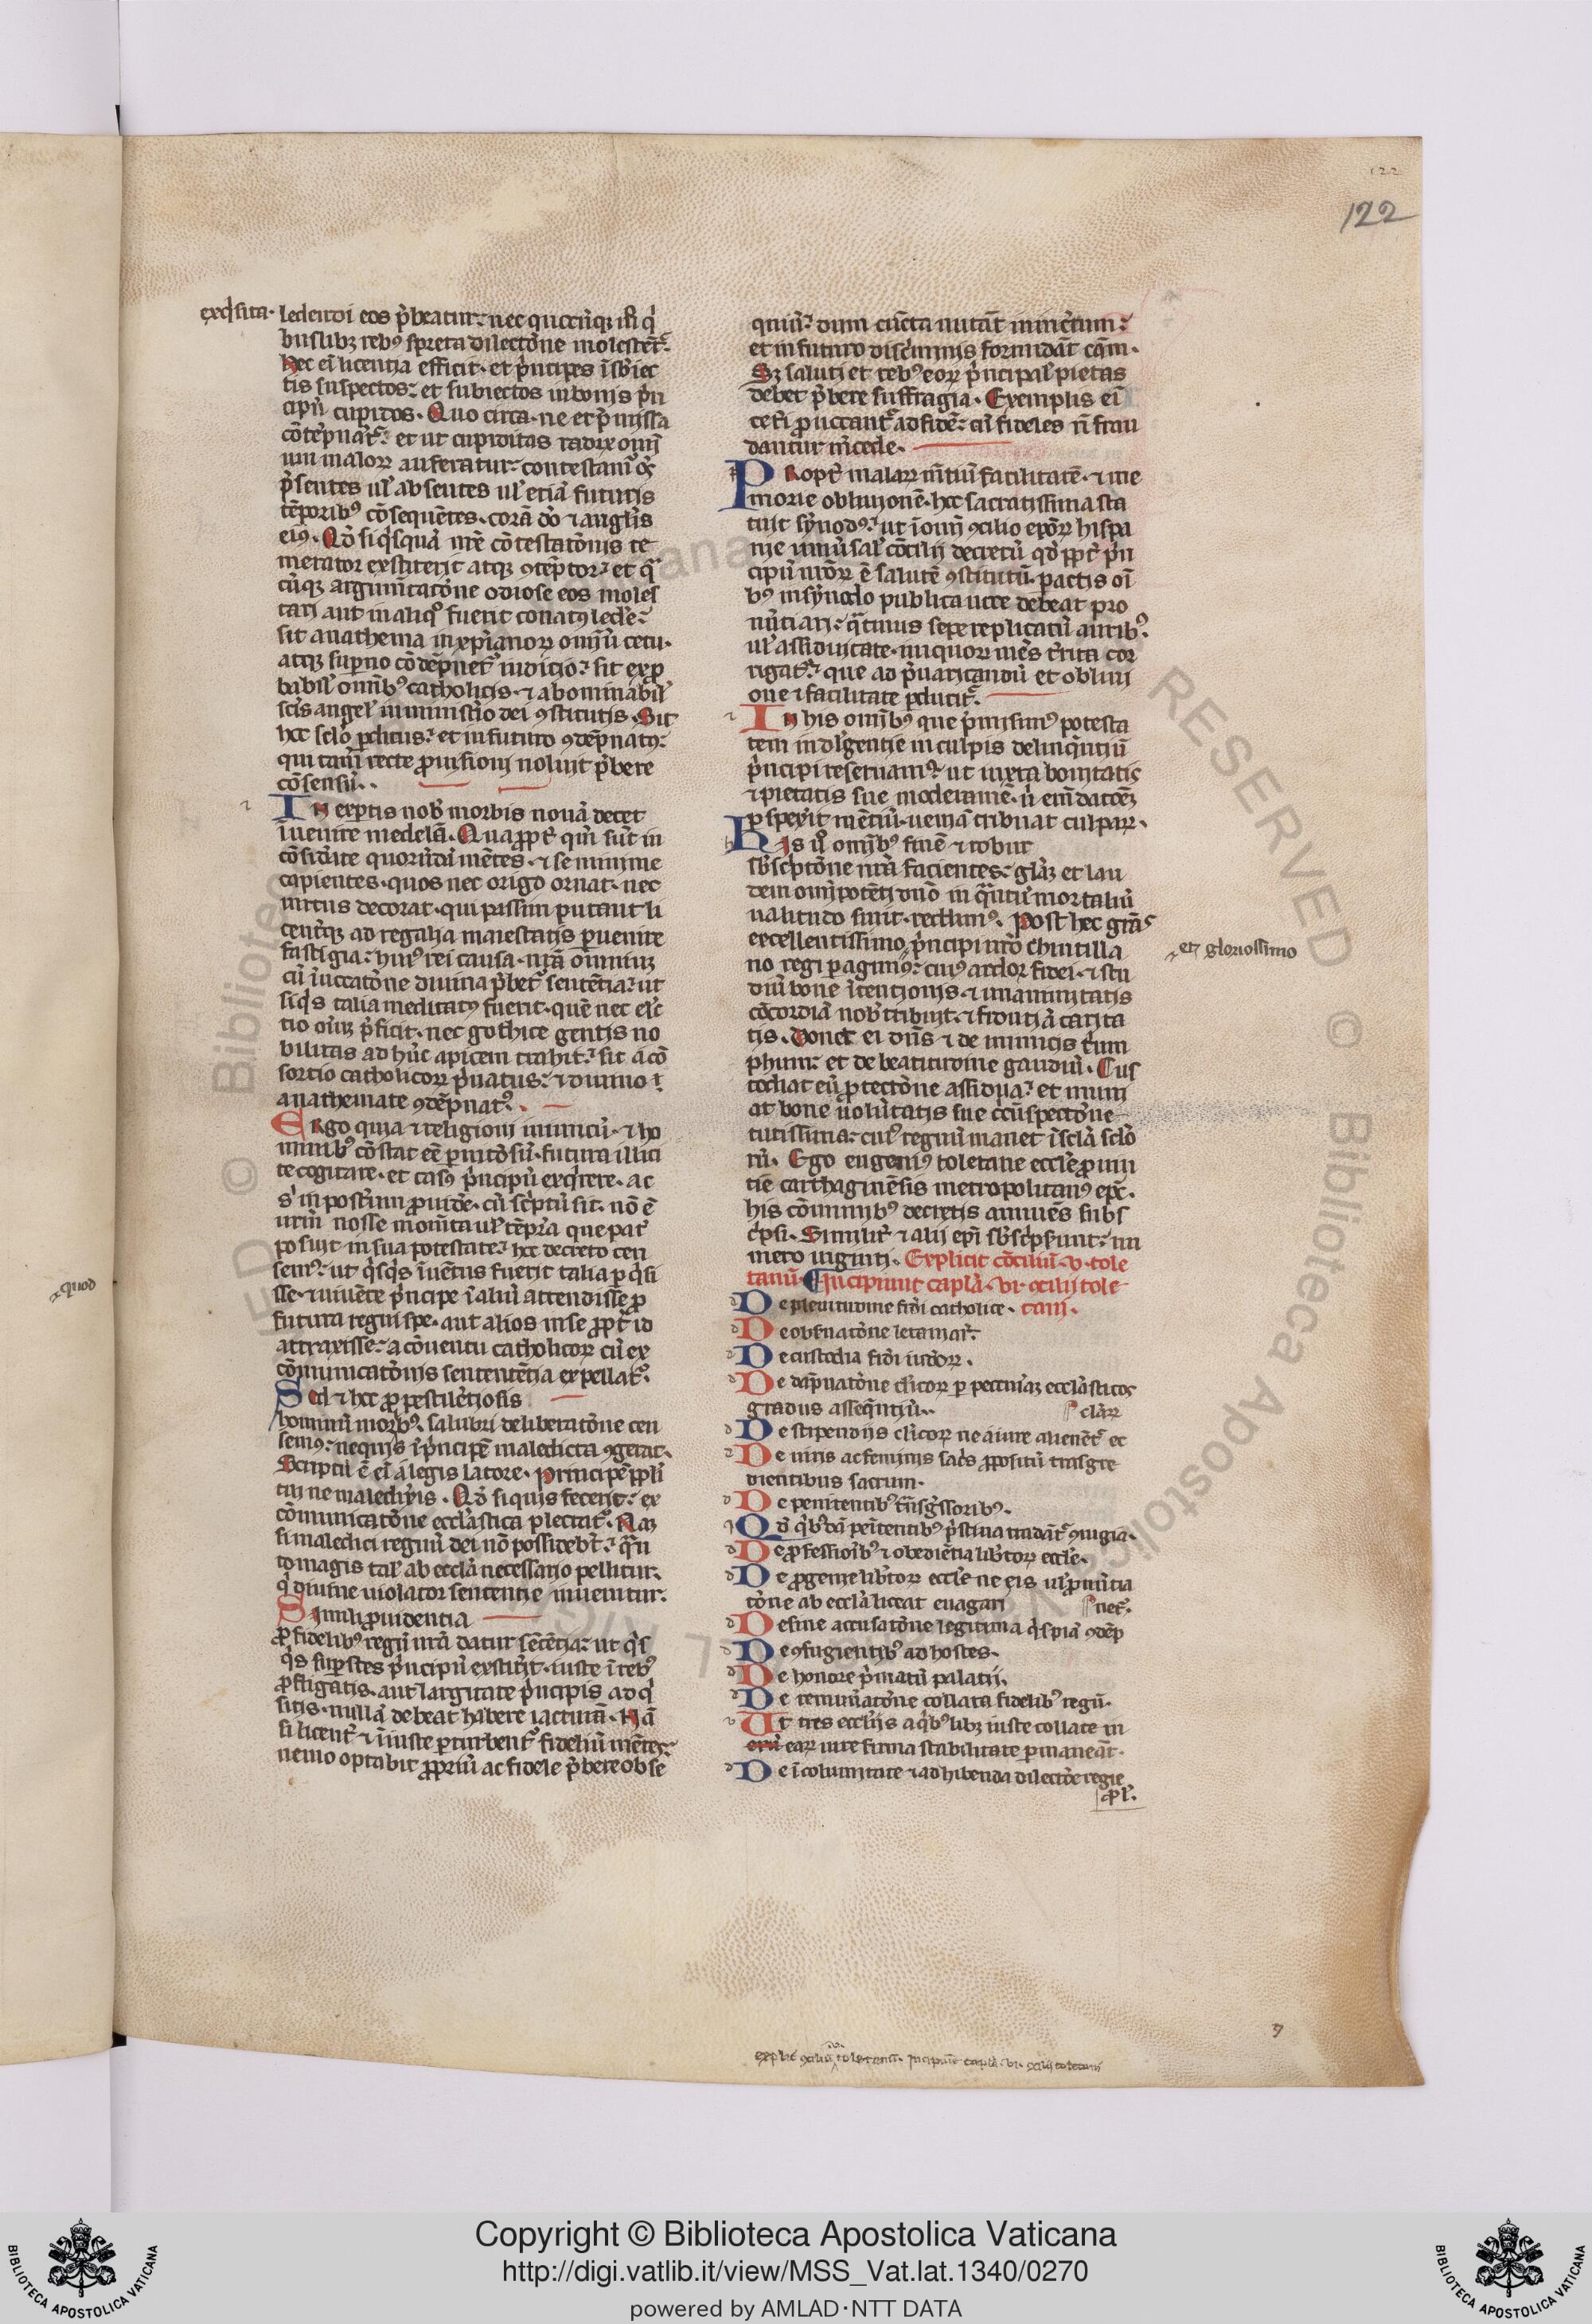 122
122
exq̇sita· ledendi eos p̄beatur: nec quocūqȝ īfi q̇
buslibȝ rebꝰ spreta dilectōne molestēt᷑·
Nec ei licentia efficit· et p̄ncipes ī sbiec
tis suspectos: et subiectos in bonis p̄n
cipū cupidos· Quo circa· ne et p̄missa
cōtēpnāt᷑: et ut cupiditas radix oīm
um maloꝝ auferatur: contestamꝰ oēs
p̄sentes ul̄ absentes ul̄ etiā futuris
tēporibꝰ cōsequētes· corā dō ⁊ angl̄is
eiꝰ· Qd̄ si q̇squā nrē cōtestatōnis te
merator exstiterit atqȝ ꝯtēptor: et q̄
cūqȝ argumētatōne odiose eos moles
tari aut in aliqͦ fuerit conatꝰ ledere:
sit anathema in xp̄ianoꝝ omīū cetu·
atqȝ suꝑno cōdēpnet᷑ iudicio: sit exꝓ
babil̄ omībꝰ catholicis· ⁊ abominabil̄
scīs angel̄ in ministīo dei ꝯstitutis· Sit
hoc sclō ꝑditus: et in futuro ꝯdēpnatꝰ:
qui tam recte ꝓuisioni noluit p̄bere
cōsensū·
In exptis nob̄ morbis nouā decet
īuenire medelā· Quaꝓpt̄ qm̄ sūt in
cōsid̄ate quorūdā mētes· ⁊ se minime
capientes· quos nec origo ornat· nec
uirtus decorat· qui passim putant li
cent̄qȝ ad regalia maiestatis ꝑuenire
fastigia: huiꝰ rei causa· nrā omniuȝ
cū īuocatōne diuina p̄bet᷑ sentētia: ut
siq̇s talia meditatꝰ fuerit· quē nec el̄c
tio oīuȝ p̄ficit· nec gothice gentis no
bilitas ad hūc apicem trahit: sit a cō
sortio catholicoꝝ p̄uatus: ⁊ diuino ī
anathemate ꝯdēpnat᷑·
Ergo quia ⁊ religioni inimicū· ⁊ ho
minibꝰ cōstat eē ꝑnitōsū· futura illici
te cogitare· et casꝰ p̄ncipū exq̇rere· ac
s̄ in post̄rum ꝓuidē· cū sc̄ptū sit· nō ē
urm̄ nosse momēta ul̄ tēpr̄a que pat̄
posuit in sua potestate: hoc decreto cen
semꝰ: ut q̇sq̇s īuētus fuerit talia ꝑq̇si
sse· ⁊ uiuēte p̄ncipe ī aliū attendisse ꝓ
quod
futura regni spe· aut alios in se ꝓpt̄ id
attraxisse: a cōuentu catholicoꝝ cū ex
cōmunicatōnis sententētia expellat᷑·
Sed ⁊ hoc ꝓ pestilētiosis
hominū morbꝰ· salubri deliberatōne cen
semꝰ: nequis ī p̄ncipē maledicta ꝯgerat·
Scriptū ē eī a legis latore· Principē ppl̄i
tui ne maledix̄is· Qd̄ si quis fecerit: ex
cōmunicatōne eccl̄astica plectat᷑· Naȝ
si maledici regnū dei nō possidebūt: q̄n
to magis tal̄ ab eccl̄a necessario pellitur·
q̇ diuine uiolator sententie inuenitur:
Simili ꝓuidentia
ꝓ fidelibꝰ regū nrā datur sētētia: ut q̇s
q̇s suꝑstes p̄ncipū exstit̄it· iuste ī rebꝰ
ꝓfligatis· aut largitate p̄ncipis adq̇
sitis· nullā debeat habere iacturā· Nā
si licent̄ ⁊ īiuste ꝑturbent᷑ fideliū mētes:
nemo optabit ꝓpriū ac fidele p̄bere obse
quiū: dum cūcta nutāt in inc̄tum:
et in futuro disc̄iminis formidāt cām·
Sȝ saluti et rebꝰ eoꝝ p̄ncipal̄ pietas
debet p̄bere suffragia· Exemplis eī
cet̄i ꝓuocant᷑ ad fidē: cū fideles n̄ frau
dantur m̄cede·
Propt̄ malaꝝ mētiū facilitatē· ⁊ me
morie obliuionē· hoc sacratissima sta
tuit synodꝰ: ut ī omī ꝯcilio ep̄oꝝ hispa
nie uniūsal̄ cōcilij decretū qd̄ ꝓpt̄ p̄n
cipū nr̄oꝝ ē salutē ꝯstitutū· pactis oī
bꝰ in synodo publica uoce debeat pro
nūtiari: q̄tinus sepe replicatū auribꝰ·
ul̄ assiduitate· iniquoꝝ mēs t̄rita cor
rigat᷑: que ad p̄uaricandū et obliui
one ⁊ facilitate ꝑducit᷑·
In his omībꝰ que p̄misimꝰ potesta
tem indl̄gentie in culpis delinq̄ntiū
p̄ncipi reseruamꝰ: ut iuxta bonitatis
⁊ pietatis sue moderamē· ū emēdatōeȝ
ꝑspex̄it mētiū· ueniā tribuat culpaꝝ·
His ū omībꝰ finē ⁊ robur
sb̄scriptōne nrā facientes: gl̄aȝ et lau
dem omīpotēti dn̄o in q̄ntū mortaliū
ualitudo sinit· reddimꝰ· Post hec grās
excellentissimo p̄ncipi nrō Chintilla
·et gloriossimo
no regi ꝑagimꝰ: cuiꝰ ardor fidei· ⁊ stu
diū bone ītentionis· ⁊ unanimitatis
cōcordiā nob̄ tribuit· ⁊ fiduciā carita
tis· Donet ei dn̄s ⁊ de inimicis t̄ium
phum: et de beatitudine gaudiū· Cus
todiat eū ꝓtectōne assidua: et muni
at bone uolūtatis sue c̄cūspectōne
tutissima: cuiꝰ regnū manet ī scl̄a sclō
rū· Ego eugeniꝰ toletane eccl̄e ꝓuin
tie carthaginēsis metropolitanꝰ ep̄c·
his cōmunibꝰ decretis annuēs subs
c̄psi· Similit̄ ⁊ alii ep̄i sb̄sc̄pserunt: nu
mero uiginti· Explicit cōciliū· v· tole
tanū· Incipiunt capl̄a· vi· ꝯcilij tole
De plenitudine fidei catholice· tani·
De obs̄uatōne letaniaꝝ:
De custodia fidei iudeoꝝ·
De dāpnatōne cl̄icoꝝ ꝑ pecuniaȝ eccl̄asticos
gradus asseq̄ntiū· cl̄aꝝ
De stipendiis cl̄icoꝝ ne a iure alienēt᷑ ec
De uiris ac feminis sac̄s ꝓpositū trāsgre
dientibus sacrum·
De penitentibꝰ trāsgressoribꝰ·
Qd̄ q̇bꝰdā penitentibꝰ p̄stina tradāt᷑ ꝯiugia·
De ꝓfessionibꝰ ⁊ obediētia libtoꝝ eccl̄e·
De ꝓgenie libtoꝝ eccl̄e ne eis ul̄ ꝓmūtia
tōne ab eccl̄a liceat euagari net᷑·
De sine accusatōne legitima q̇spiā ꝯdēp
De ꝯfugientibꝰ ad hostes·
De honore p̄matū palatii·
De remunatōne collata fidelibꝰ regū·
Ut tres eccl̄ijs a q̇bꝰlibȝ iuste collate in
eaꝝ iure firma stabilitate ꝑmaneāt·
De īcolumitate ⁊ adhibenda dilectōe regie
ꝓl̄·
explic̄ ꝯciliū ·v· toletanū· Incipiunt capl̄a· vi· ꝯcilij toletani
Copyright © Biblioteca Apostolica Vaticana
http://digi.vatlib.it/view/MSS_Vat.lat.1340/0270
powered by AMLAD·NTT DATA
BIBLIOTECA APOSTOLICA VATICANA
BIBLIOTECA APOSTOLICA VATICANA